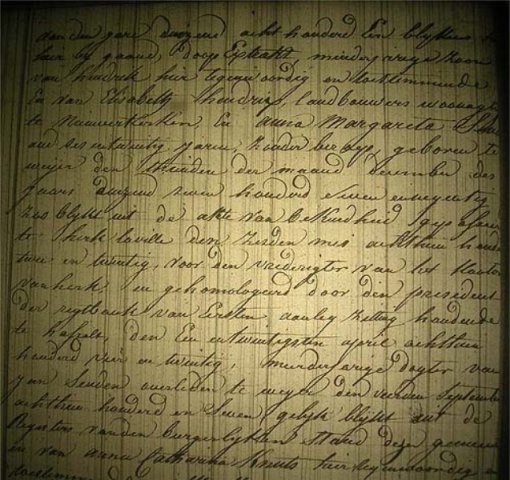 van den jare duizend acht honderd Een blykens
hier by gaand, doop Extrakt, minderjarige zoon
van hendrik hier tegenwoordig en toestemmende
En van Elisabeth hendrix, landbouwers woonagtig
te Nieuwerkerken, En anna Margareta
oud zes entwintig Jaren, Zonder beroep, geboren te
weijer den thienden der maand December des
Jaars duizend zeven honderd seven ennegentig
zoo blykt uit de akte van bekendheid gegeven
te herk laville den zesden mei achtthien honderd
twee en twintig, voor den vrederigter van het Kanton
van herk en gehomologeerd door den president
der regtbank van Eersten aanleg Zitting houdende
te hasselt, den Een entwintigsten april achtthien
honderd vier en twintig, meerderjarige dogter van
Jan overleden te weyer den september
achtthien honderd en Seven gelyk blykt uit de
Registers vanden burgerlyken Stand dezer gemeente
en van anna Catharina Knuts hier tegenwoordig en